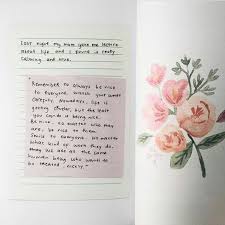 Last night my mom gave me lecture
about life and I found it really
calming and nice.
"Remember to always be nice
to everyone. Watch your words
carefully. Nowadays, life is
getting crueler, but the least
you can do is being nice.
Be nice, no matter who they
are, be nice to them.
Smile to everyone. No matter
what kind of work they do,
they are all the same
human being who wants to
be treated nicely."